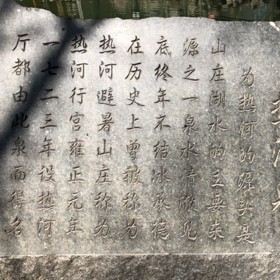 为热河的源头是
山庄湖水的主要来
源之一泉水清澈见
底终年不结冰承德
在历史上曾被称为
热河避暑山庄称为
热河行宫雍正元年
一七二三年设热河
厅都由此泉而得名